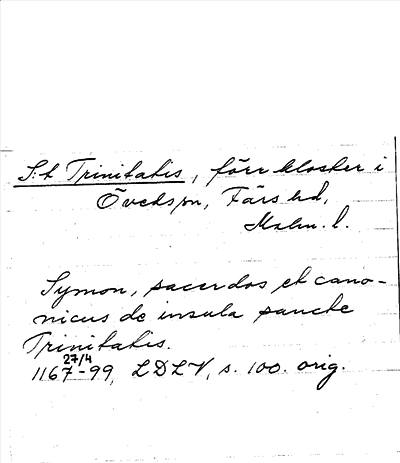 S:t Trinitatis, förr kloster i
Övedspn, Färs hd,
Malm. l.
Symon, sacerdos et cano-
nicus de insula sancte
Trinitatis.
27/4
1167-99, LDLV, s. 100. orig.